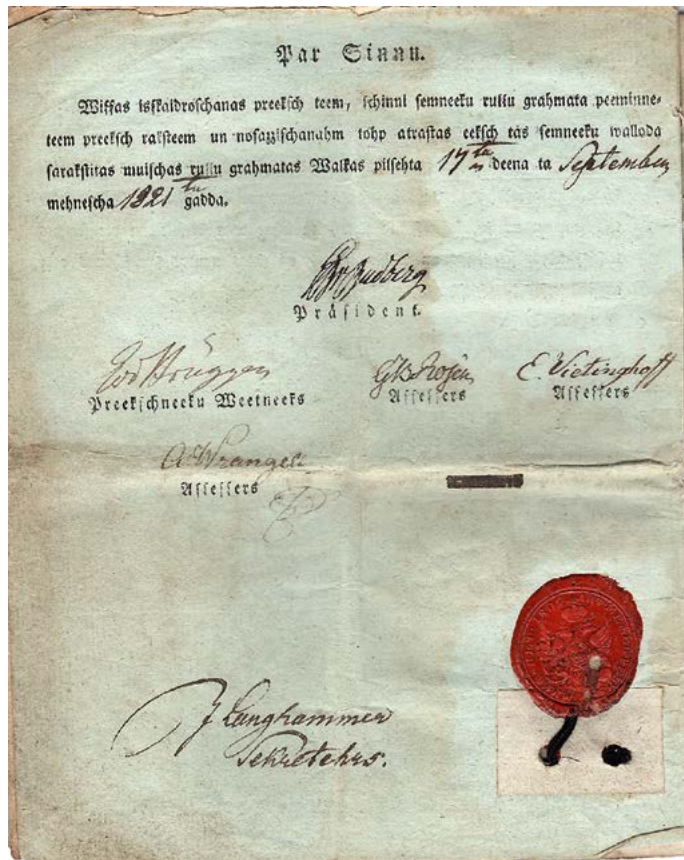 Par Sinnu.
Wissas isskaidroschanas preeksch teem, schinni semneeku rullu grahmata peeminne-
teem preeksch raksteem un nosazzischanahm tohp atrastas eeksch tás semneeku walloda
sarakstitas muischas rullu grahmatas Walkas pilsehta 17ta deena ta September
mehnescha 1821ta gadda.
Budberg
Präsident.
Brüggen
Preekschneeku Weetneeks
Rosen
Assessers
E. Vietinghoff
Assessers
A Wrangell
Assessers
J Langhammer
Sekretehrs.